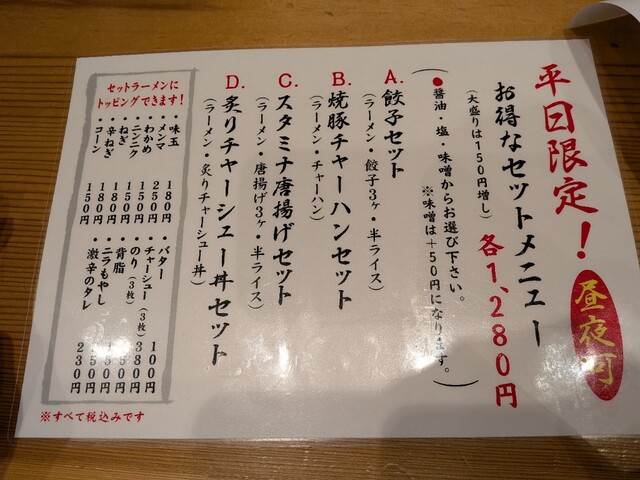 平日限定！
昼夜可
お得なセットメニュー
(大盛りは150円増し) 各1,280円
●醤油・塩・味噌からお選び下さい。
※味噌は+50円になります。
A. 餃子セット
(ラーメン・餃子3ヶ・半ライス)
B. 焼豚チャーハンセット
(ラーメン・チャーハン)
C. スタミナ唐揚げセット
(ラーメン・唐揚げ3ヶ・半ライス)
D. 炙りチャーシュー丼セット
(ラーメン・炙りチャーシュー丼)
セットラーメンに
トッピングできます！
・味玉 180円
・メンマ 200円
・わかめ 150円
・ニンニク 150円
・ねぎ 180円
・辛ねぎ 180円
・コーン 150円
・バター 100円
・チャーシュー(3枚) 380円
・のり(3枚)
・背脂
・ニラもやし
・激辛のタレ 230円
※すべて税込みです